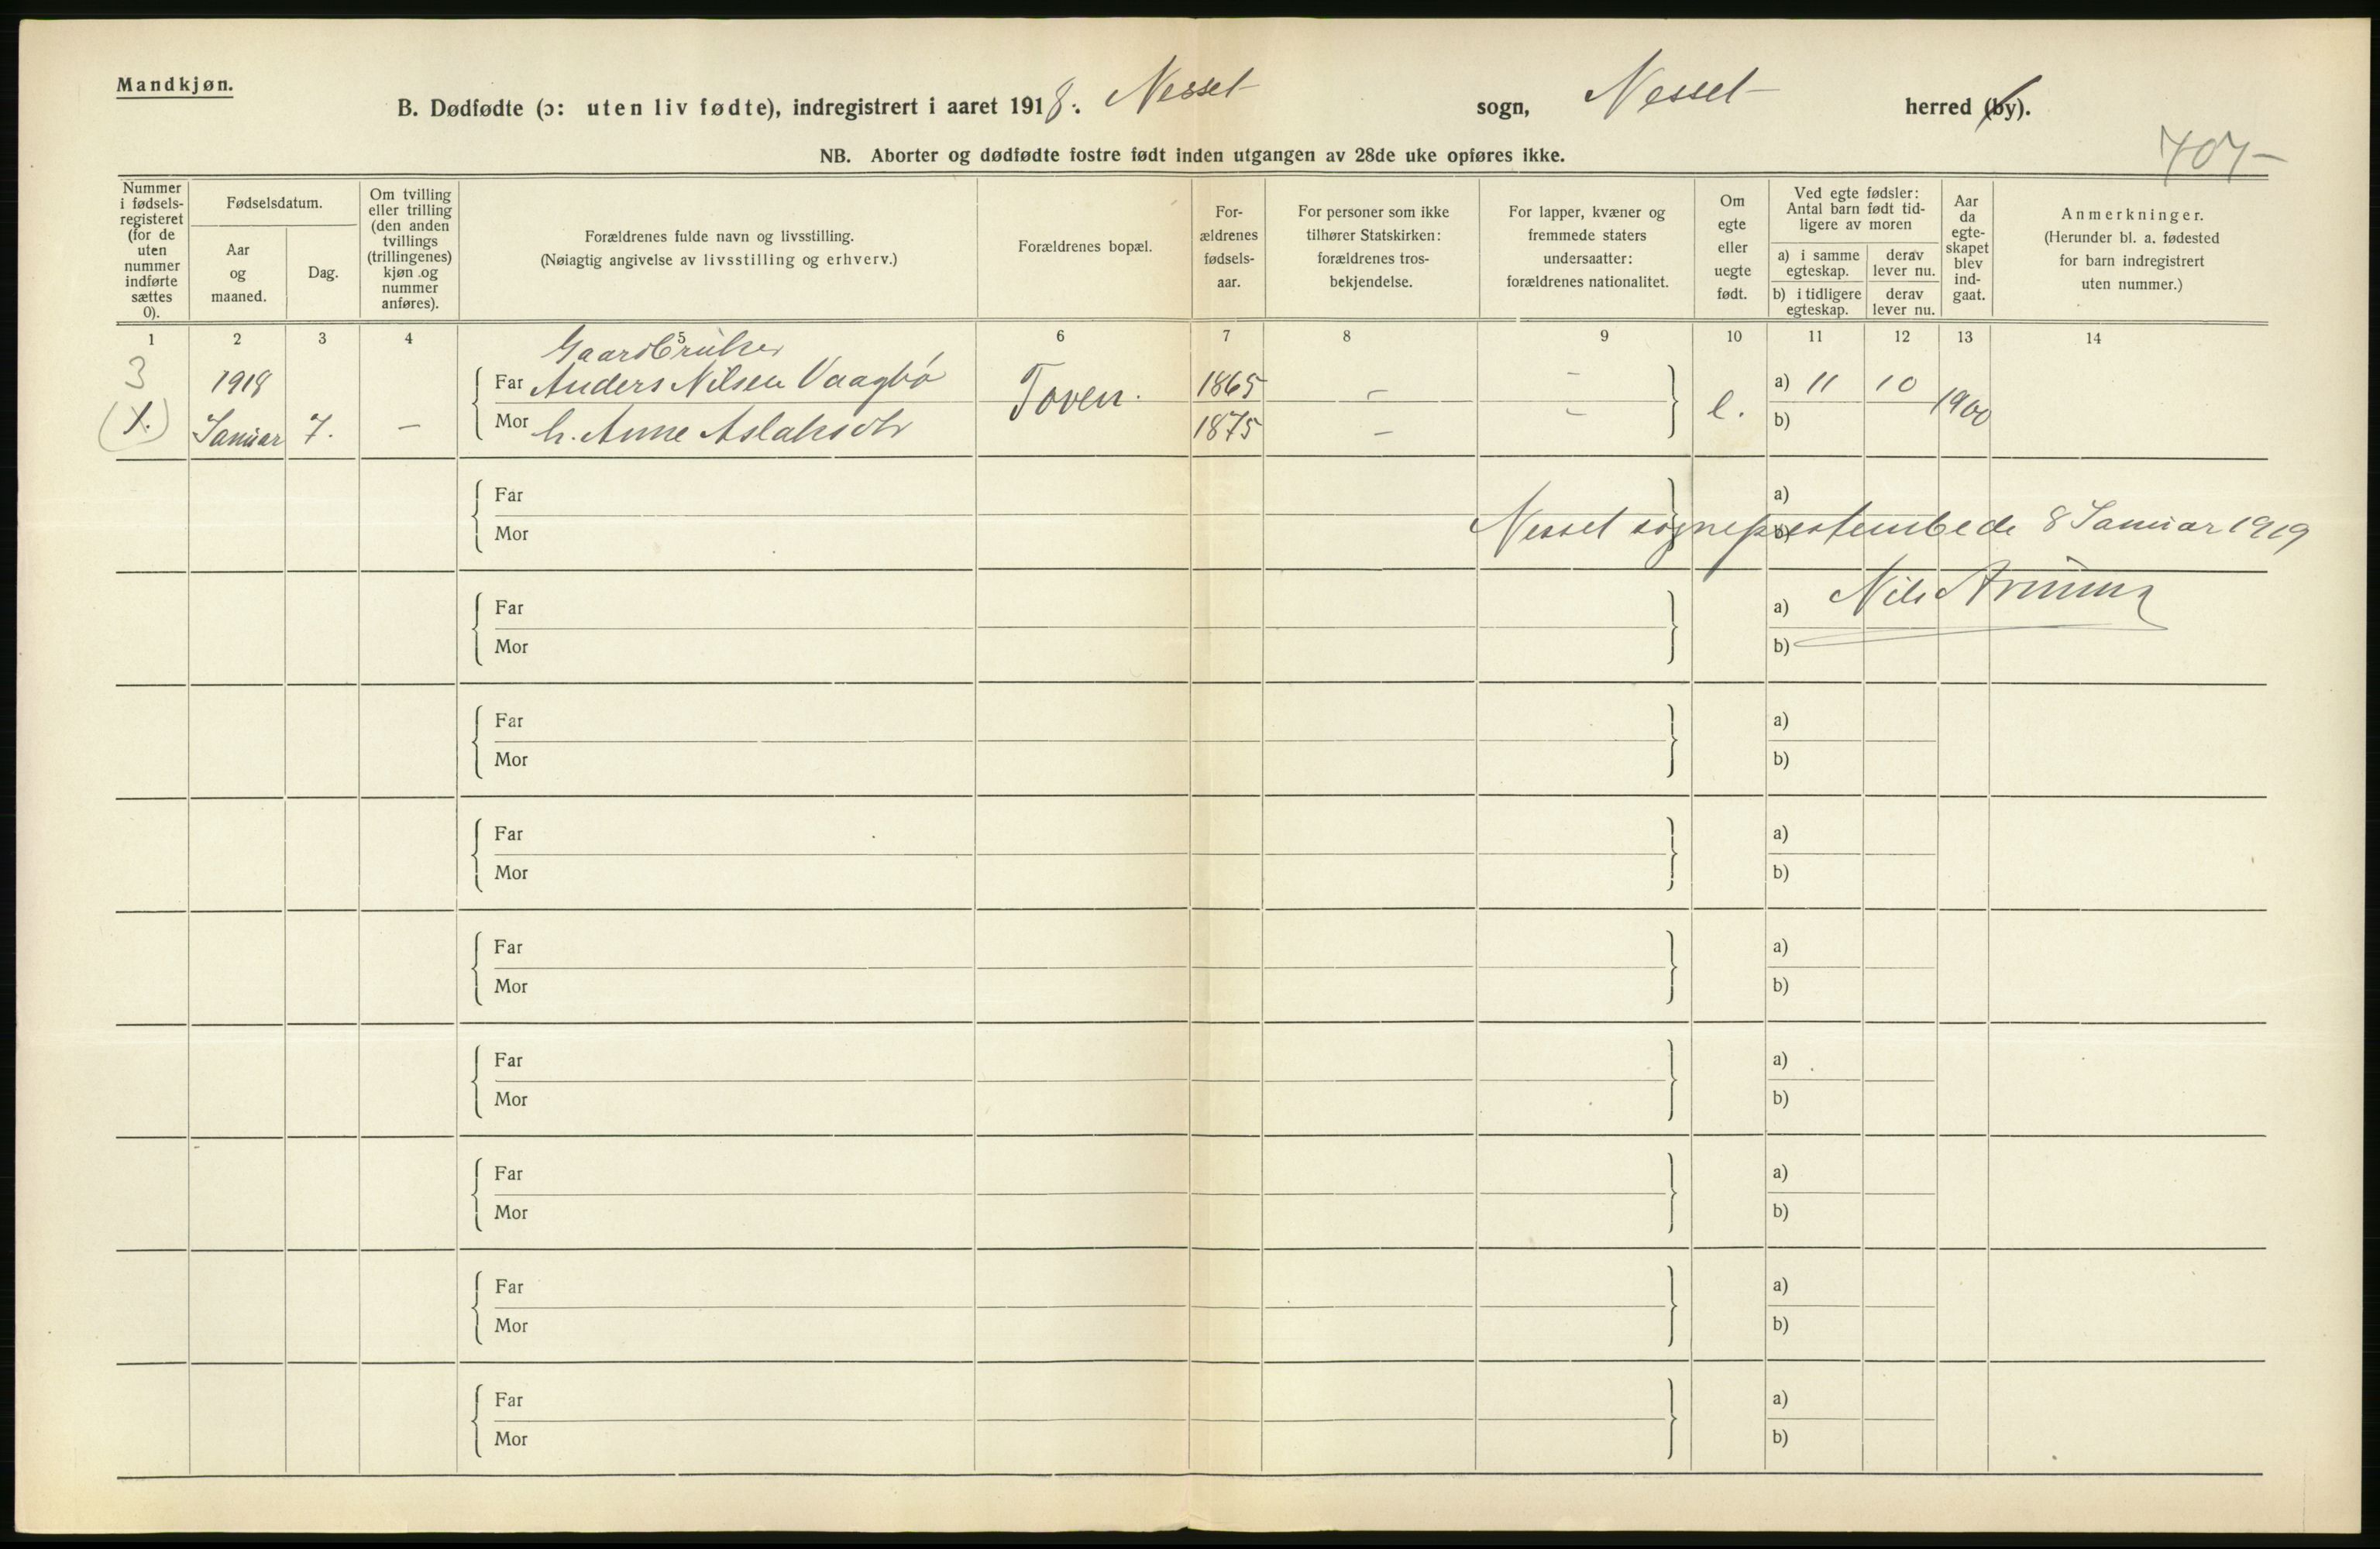 Mandkjøn.
B. Dødfødte (ɔ: uten liv fødte), indregistrert i aaret 1918. Nesset sogn, Nesset herred (by).
NB. Aborter og dødfødte fostre født inden utgangen av 28de uke opføres ikke.
707-
Nummer i fødselsregisteret (for de uten nummer indførte sættes 0).
Fødselsdatum.
Aar og maaned.
Dag.
Om tvilling eller trilling (den anden tvillings (trillingenes) kjøn og nummer anføres).
Forældrenes fulde navn og livsstilling.
(Nøiagtig angivelse av livsstilling og erhverv.)
Forældrenes bopæl.
For-
ældrenes
fødsels-
aar.
For personer som ikke
tilhører Statskirken:
forældrenes tros-
bekjendelse.
For lapper, kvæner og
fremmede staters
undersaatter:
forældrenes nationalitet.
Om
egte
eller
uegte
født.
Ved egte fødsler:
Antal barn født tid-
ligere av moren
a) i samme egteskap.
derav lever nu.
b) i tidligere egteskap.
derav lever nu.
Aar
da
egte-
skapet
blev
ind-
gaat.
Anmerkninger.
(Herunder bl. a. fødested
for barn indregistrert
uten nummer.)
1 2 3 4 5 6 7 8 9 10 11 12 13 14
Gaardbruker
3 1918 Far Anders Nilsen Vaagbø Toven. 1865 - - a) 11 10 1900
(1.) Januar 7. - Mor h. Anne Aslaksdtr 1875 - - e. b)
Far a)
Mor b)
Nesset sogneprestembede 8 Januar 1919
Far a) Nils
Mor b)
Far a)
Mor b)
Far a)
Mor b)
Far a)
Mor b)
Far a)
Mor b)
Far a)
Mor b)
Far a)
Mor b)
Far a)
Mor b)